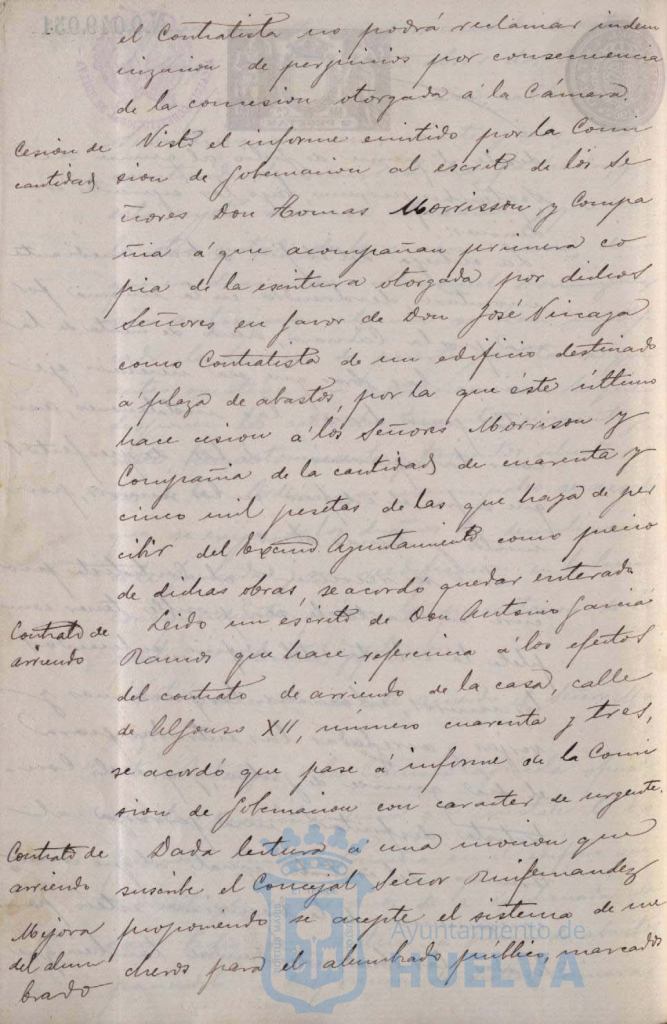 el Contratista no podrá reclamar indem
nizacion de perjuicios por consecuencia
de la concesion otorgada á la Cámara.
Cesión de
cantidad
Visto el informe emitido por la Comi
sion de Gobernacion al escrito de los Se
ñores Don Tomas Morrisson y Compa
ñia á que acompañan primera co
pia de la escritura otorgada por dichos
Señores en favor de Don José Vizcaya
como Contratista de un edificio destinado
a plaza de abastos, por la que éste último
hace cision á los Señores Morrison y
Compañia de la cantidad de cuarenta y
cinco mil pesetas de las que haya de per
cibir del Excmo Ayuntamiento como precio
de dichas obras, se acordó quedar enterado.
Contrato de
arriendo
Leido un escrito de Don Antonio Garcia
Ramos que hace referencia á los efectos
del contrato de arriendo de la casa, calle
de Alfonso XII, número cuarenta y tres,
se acordó que pase á informe de la Comi
sion de Gobernacion con caracter de urgente.
Contrato de
arriendo
Mejora
del alum
brado
Dada lectura á una mocion que
suscribe el Concejal Señor Ruifernandez
proponiendo se acepte el sistema de me
cheros para el alumbrado público, marcados
Ayuntamiento de
HUELVA